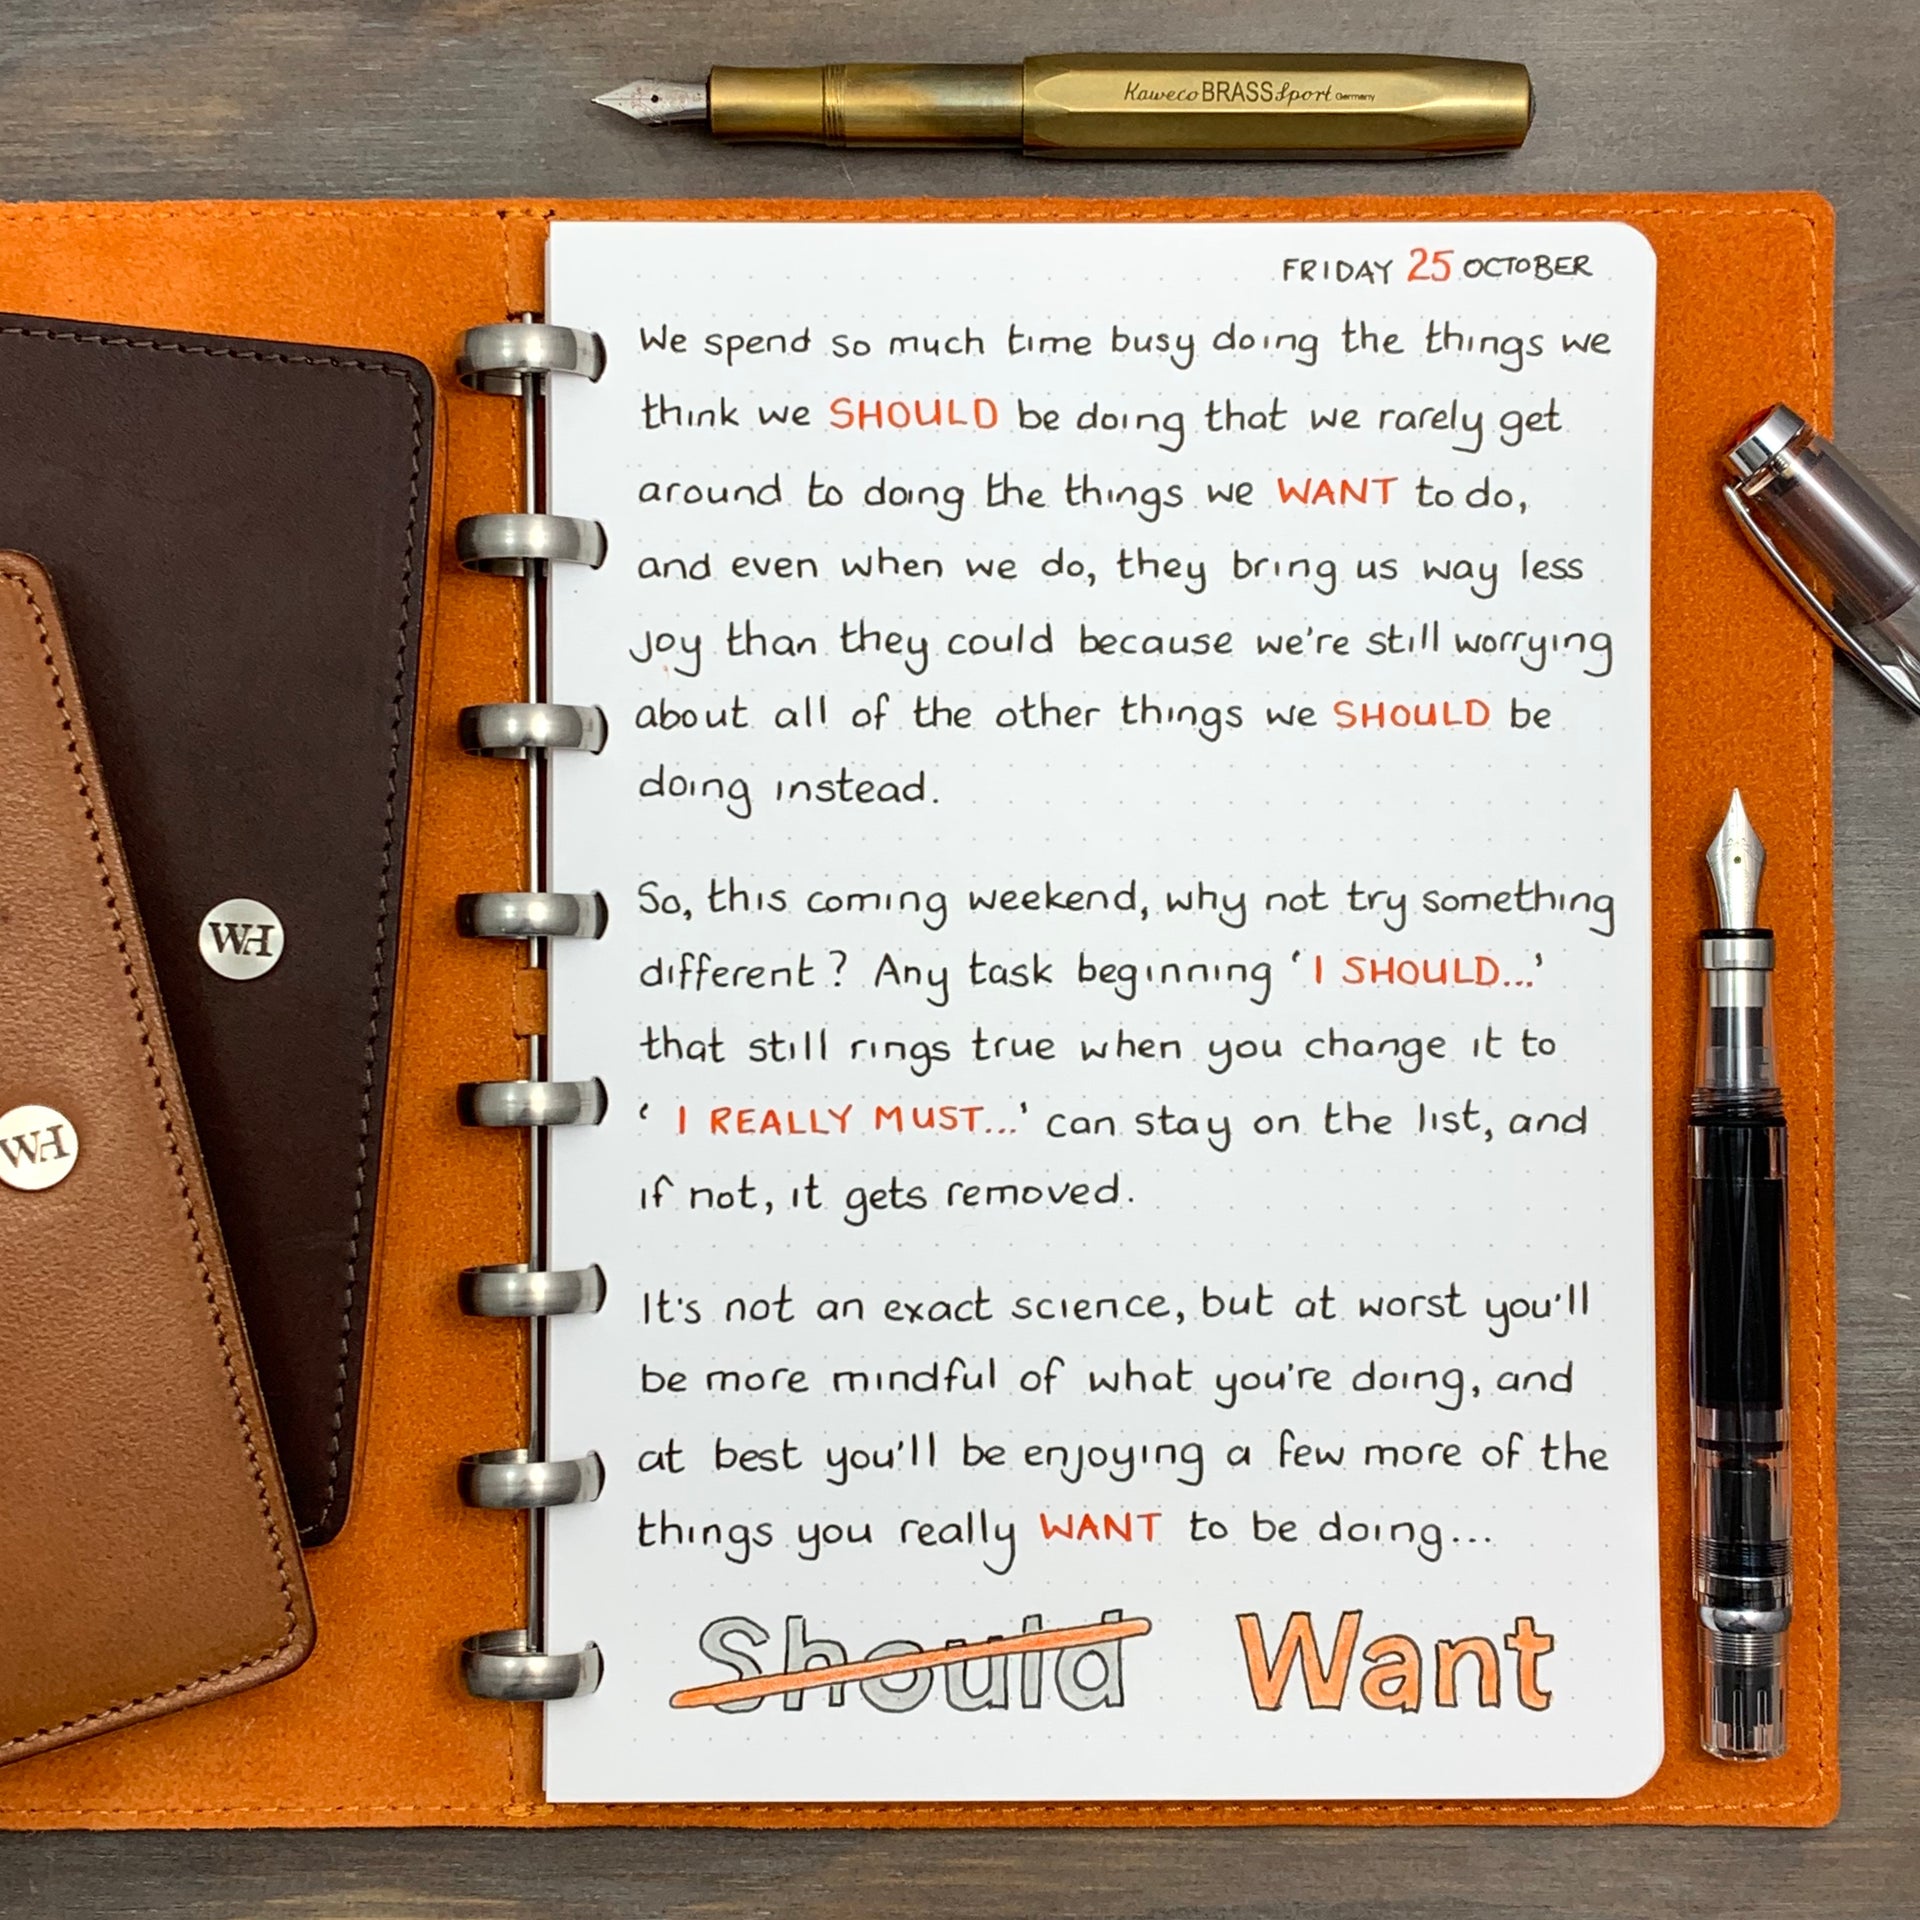 Kaweco BRASS Sport Germany
FRIDAY 25 OCTOBER
We spend so much time busy doing the things we
think we SHOULD be doing that we rarely get
around to doing the things we WANT to do,
and even when we do, they bring us way less
joy than they could because we're still worrying
about all of the other things we SHOULD be
doing instead.
So, this coming weekend, why not try something
different? Any task beginning ‘I SHOULD...’
that still rings true when you change it to
‘I REALLY MUST...’ can stay on the list, and
if not, it gets removed.
It's not an exact science, but at worst you'll
be more mindful of what you're doing, and
at best you'll be enjoying a few more of the
things you really WANT to be doing...
Should Want
WH
WH